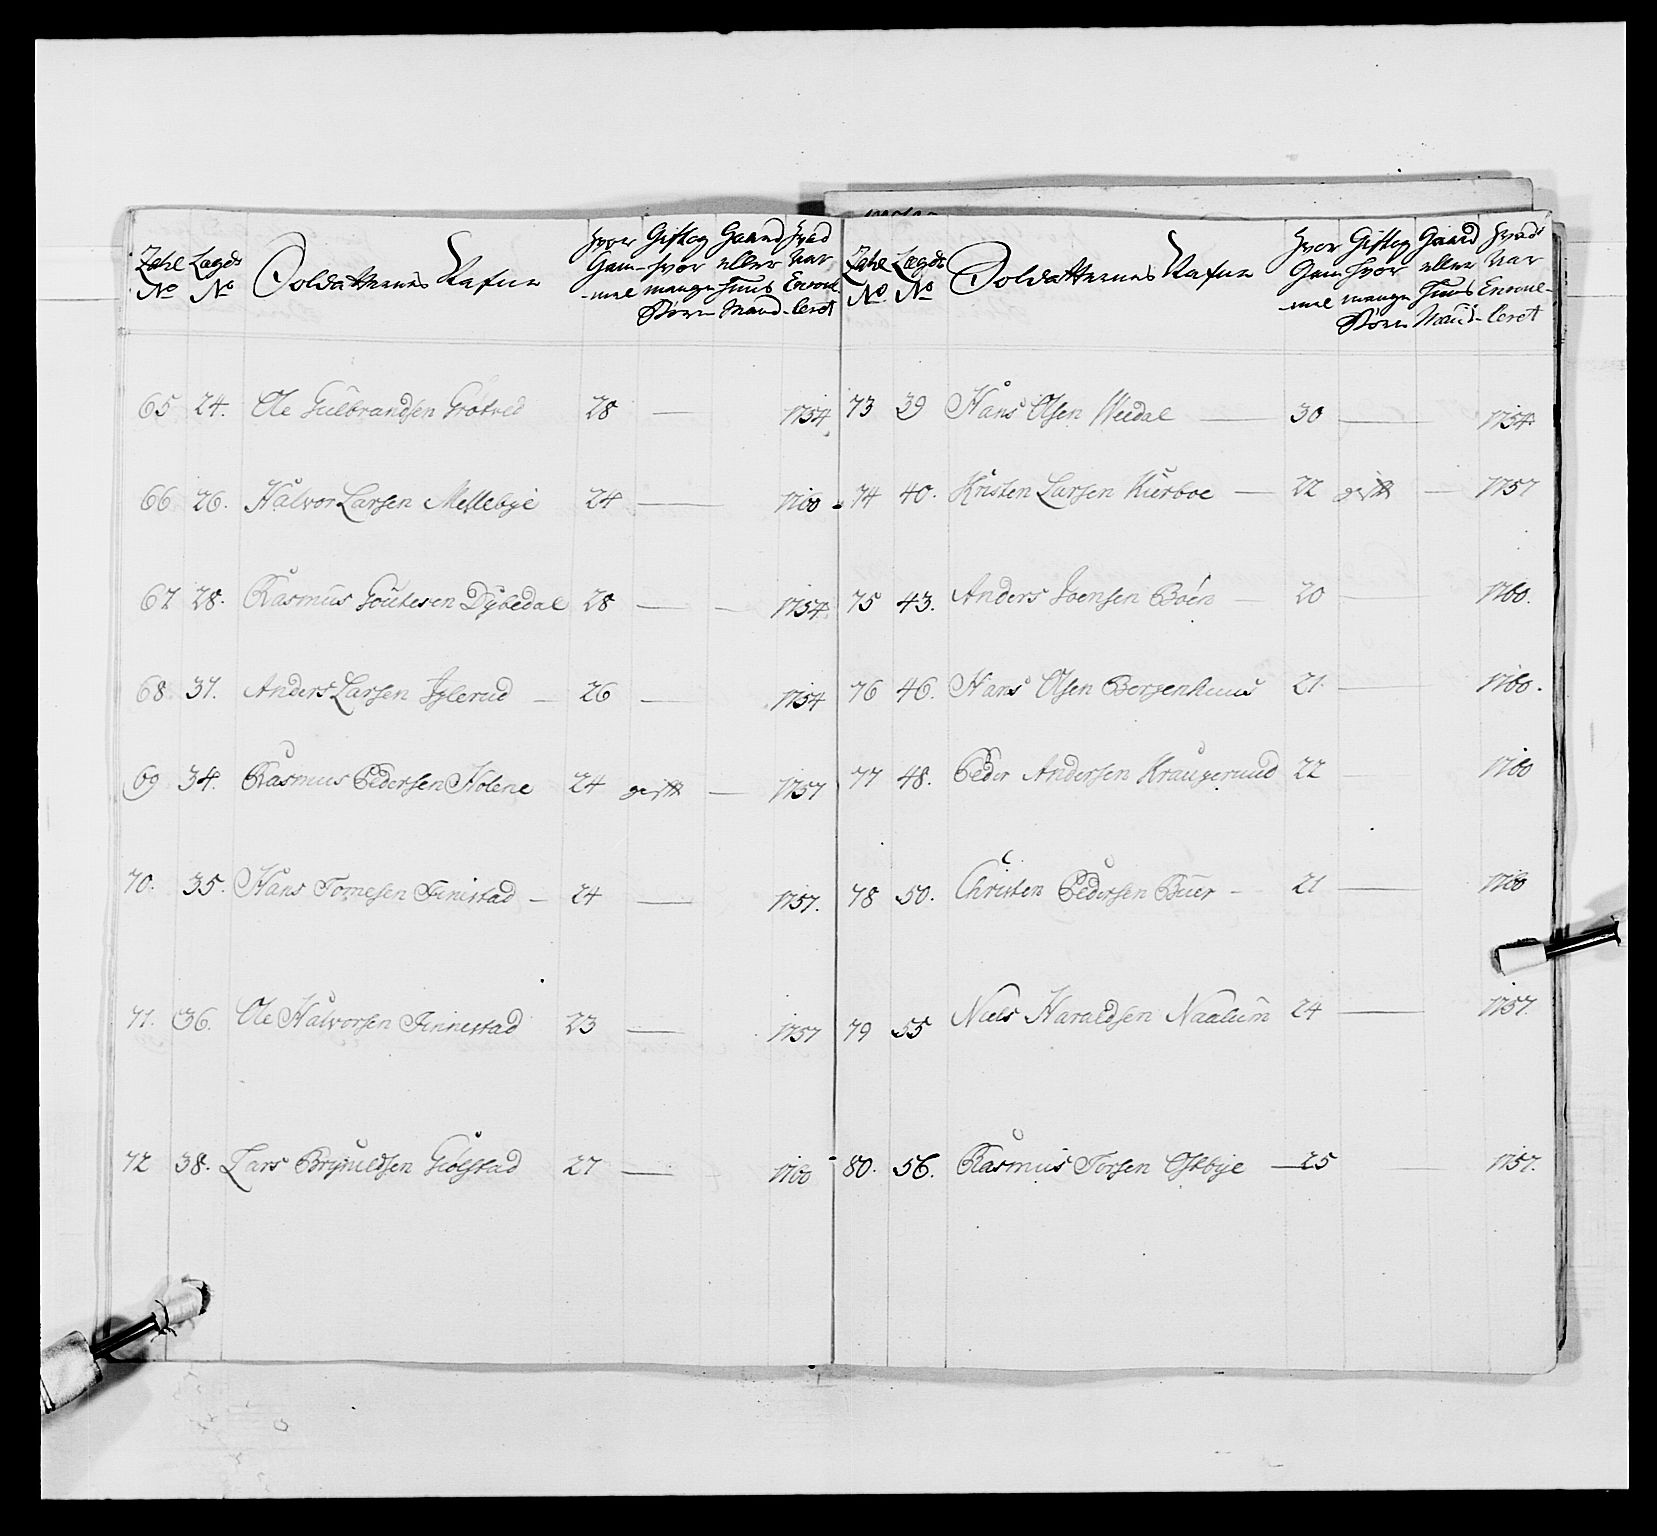 Zahl No Lægds No Soldatternes Nafne hvor Gammel Gift og hvor mange Børn Gaard eller Huus Mand hvad Aar Enroulleret
65 24. Ole Gulbrandsen Grøtved 28 — 1754
66 26. Halvor Larsen Mellebye 24 — 1760
67 28. Rasmus Goutesen Dybedal 28 — — 1754
68 31. Anders Larsen Iglerud — 26 — 1754
69 34. Rasmus Pedersen Holene 24 gift — 1757
70. 35. Hans Tomesen Finistad — 24 — 1757.
71. 36. Ole Halvorsen Finnestad 23 — 1757
72 38. Lars Brynildsen Giølstad 27 — 1760
Zahl No Lægds No Soldatternes Nafne hvor Gammel Gift og hvor mange Børn Gaard eller Huus Mand hvad Aar Enroulleret
73 39 Hans Olsen Weedal — 30 — 1754
74 40. Kristen Larsen Kierboe — 22 gift — 1757
75 43. Anders Joensen Boén — 20 — 1760.
76 46. Hans Olsen Borgenhuus 21 — 1760.
77 48. Peder Andersen Kraugerud 22 1760
78 50. Christen Pedersen Buer - 21 — 1760
79 55 Niels Haraldsen Naalum 24 — 1757.
80. 56. Rasmus Torsen Ostbye — 25 1757.